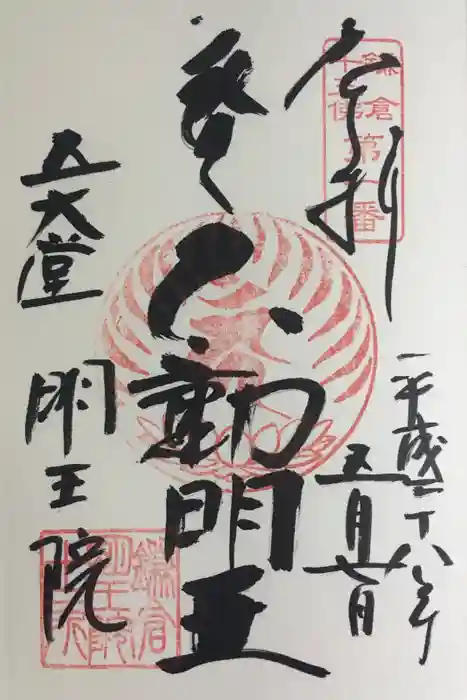 奉拝
鎌倉
十三佛
第一番
平成二十八年
五月七日
不動明王
五大堂
明王院
鎌倉
明王院